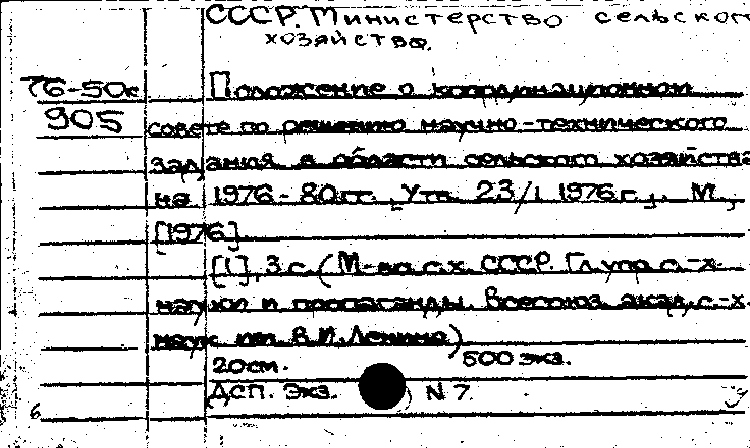 СССР. Министерство сельского
хозяйства.
76-50с Положение о координационном
905 совете по решению научно-технического
задания в области сельского хозяйства
на 1976-80гг. [Утв. 23/I 1976г.]. М.,
[1976]
[1], 3 с. (М-во с.х. СССР. Гл. упр. с.-х.
науки и пропаганды. Всесоюз. акад. с.-х.
наук им. В.И. Ленина)
20см. 500 экз.
ДСП. Экз. N 7
6